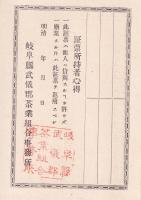 証票所持者心得
一此証票ハ他人ニ貸与スルヲ許サズ
一廃業スルトキハ此証票ヲ返納スベシ
明治 年 月 日
岐阜縣武儀郡茶業組合事務所